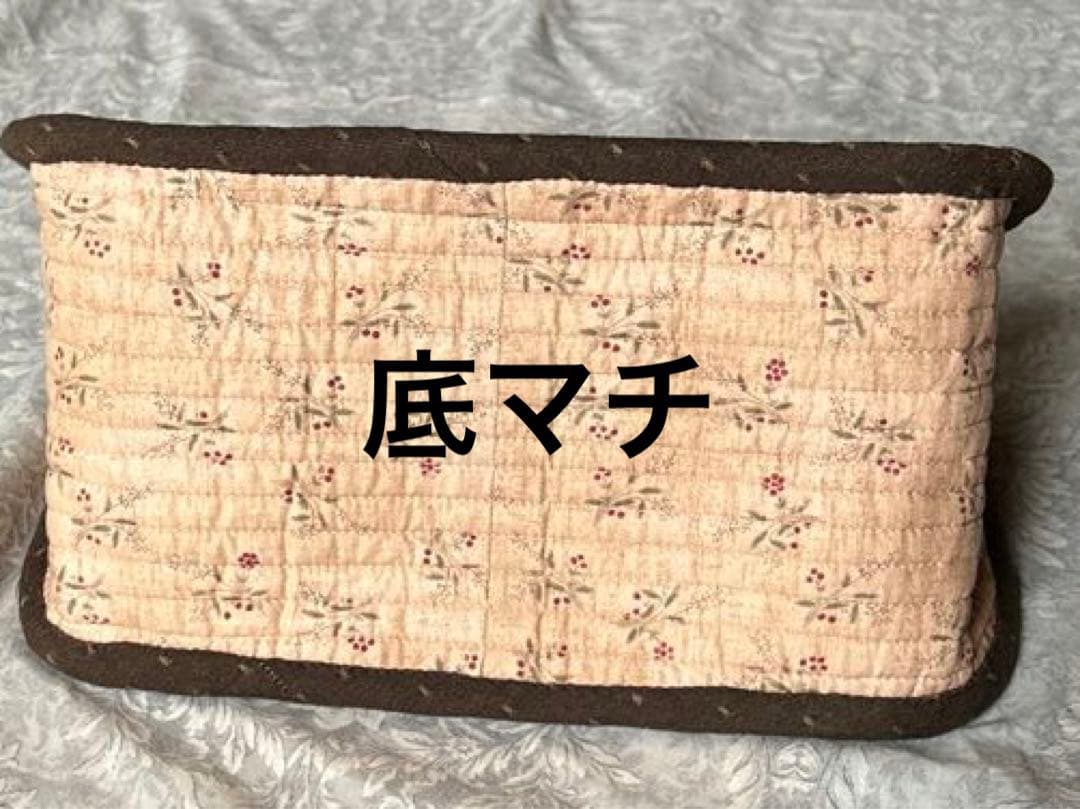 底マチ